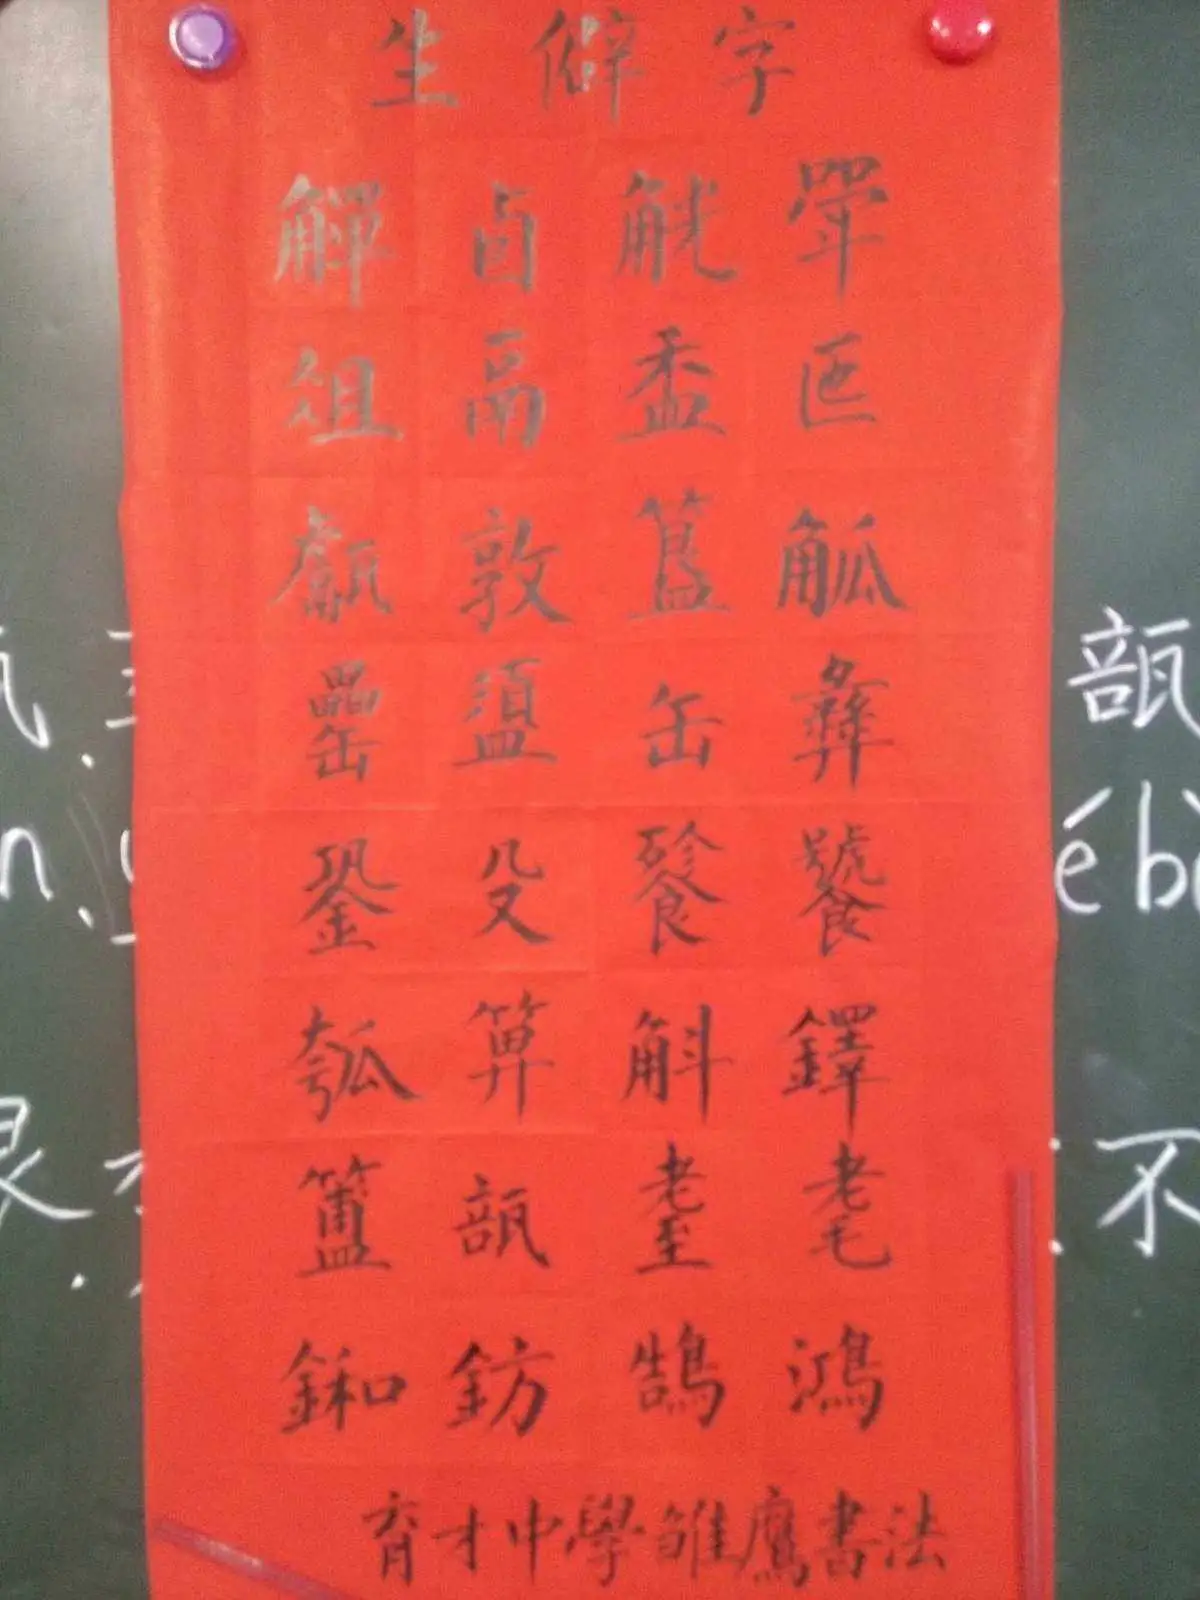 生僻字
斝觥卣觶
匜盉鬲俎
觚簋敦甗
彝缶盨罍
饕餮殳銎
鐸斛箅瓠
耄耋瓿簠
鴻鵠鈁
育才中學雏鷹書法
瓿
不